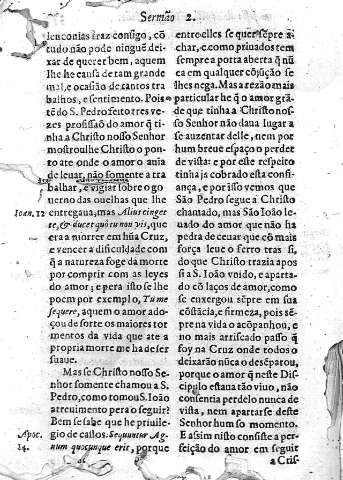 Sermão 2.
lenconias traz consigo, cō
tudo não pode ninguē dei-
xar de querer bem, aquem
lhe he causa de tam grande
mal, e ocasião de tantos tra
balhos, e sentimento. Pois
tē do S. Pedro feito tres ve-
zes profissão do amor q̃ ti-
nha a Christo nosso Senhor
mostroulhe Christo o pon-
to ate onde o amor o auia
de leuar, não somente a tra
balhar, e vigiar sobre o go-
uerno das ouelhas que lhe
Ioan. 12 entregaua, mas Alius cinget
te, & ducet quò tu non vis, que
era a morrer em hũa Cruz,
e vencer a dificuldade com
q̃ a natureza foge da morte
por comprir com as leyes
do amor; e pera isto se lhe
poem por exemplo, Tu me
sequere, aquem o amor ado-
çou de sorte os maiores tor
mentos da vida que ate a
propria morte me ha de ser
suaue.
Mas se Christo nosso Se-
nhor somente chamou a S.
Pedro, como tomou S. Ioão
atreuimento pera o seguir?
Bem se sabe que he priuile-
Apoc. gio de castos. Sequuntur Ag-
14. num quocunque erit, porque
entre elles se quer sēpre a-
char, e como priuados tem
sempre a porta aberta q̃ nũ
ca em qualquer cōjũção se
lhes nega. Mas a rezão mais
particular he q̃ o amor grã-
de que tinha a Christo nos-
so Senhor não daua lugar a
se auzentar delle, nem por
hum breue espaço o perder
de vista: e por este respeito
tinha ja cobrado esta confi-
ança, e por isso vemos que
São Pedro segue a Christo
chamado, mas São Ioão le-
uado do amor que não ha
pedra de ceuar que cō mais
força leue o ferro tras si,
do que Christo trazia apos
si a S. Ioão voido, e aparta-
do cō laços de amor, como
se enxergou sēpre em sua
cōstãcia, e firmeza, pois sē-
pre na vida o acōpanhou, e
no mais arriscado passo q̃
foy na Cruz onde todos o
deixarão nũca o desēparou,
porque o amor q̃ neste Dis-
cipulo estaua tão viuo, não
consentia perdelo nunca de
vista, nem apartarse deste
Senhor hum so momento.
E assim nisto consiste a per-
feição do amor em seguir
a Cris-